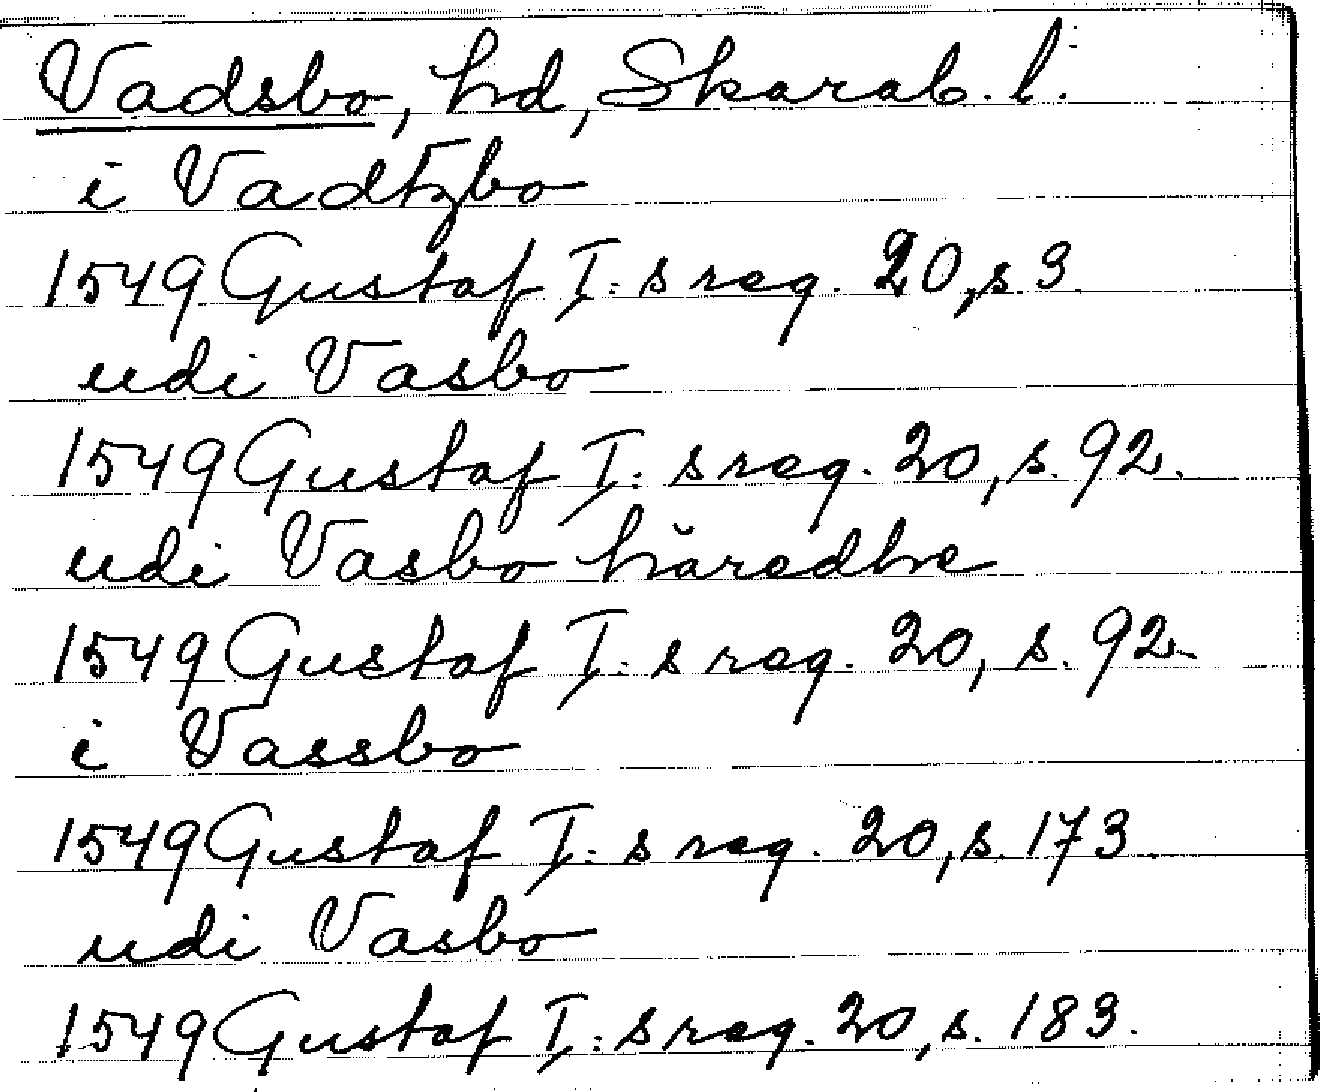 Vadsbo, hd, Skarab. l.
i Vadtzbo
1549 Gustaf I:s reg. 20, s 3
udi Vasbo
1549 Gustaf I:s reg. 20, s. 92.
udi Vasbo häredhe
1549 Gustaf I:s reg. 20, s. 92.
i Vassbo
1549 Gustaf I:s reg. 20, s. 173
udi Vasbo
1549 Gustaf I:s reg. 20, s. 183.